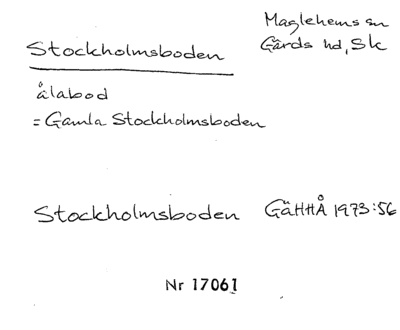 Stockholmsboden
Maglehems sn
Gärds hd, Sk
ålabod
= Gamla Stockholmsboden
Stockholmsboden GäHHÅ 1973:56
Nr 17061